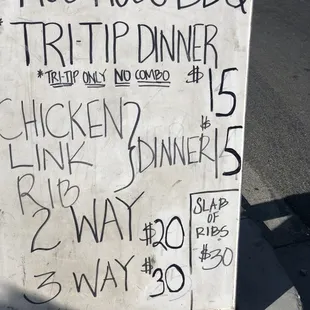 BBQ
TRI-TIP DINNER
*TRI-TIP ONLY NO COMBO $15
CHICKEN
LINK } DINNER $15
RIB
2 WAY $20
3 WAY $30
SLAB
OF
RIBS
$30